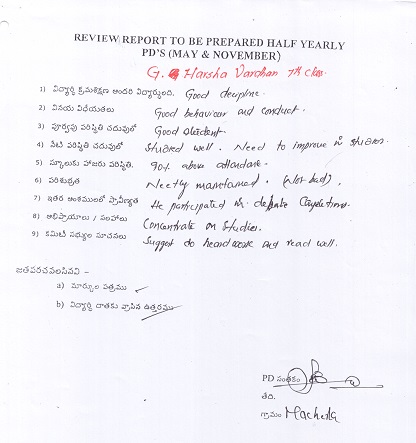 REVIEW REPORT TO BE PREPARED HALF YEARLY
PD'S (MAY & NOVEMBER)
G. Harsha Vardhan 7th class
1) విద్యార్థి క్రమశిక్షణ అందరి విద్యార్థులది. Good decipline.
2) వినయ విధేయతలు Good behaviour and conduct.
3) పూర్వపు పరిస్థితి చదువులో Good student.
4) నేటి పరిస్థితి చదువులో Studied well. Need to improve in studies.
5) స్కూలుకు హాజరు పరిస్థితి. 90% above attendance.
6) పరిశుభ్రత Neetly maintained. (Not bad).
7) ఇతర అంశములలో ప్రావీణ్యత He participated in
8) అభిప్రాయాలు / సలహాలు Concentrate on studies.
9) కమిటీ సభ్యుల సూచనలు Suggest do and read well.
జతపరచవలసినవి :-
a) మార్కుల పత్రము
b) విద్యార్థి దాతకు వ్రాసిన ఉత్తరము
PD సంతకం
తేది.
గ్రామం Macherla